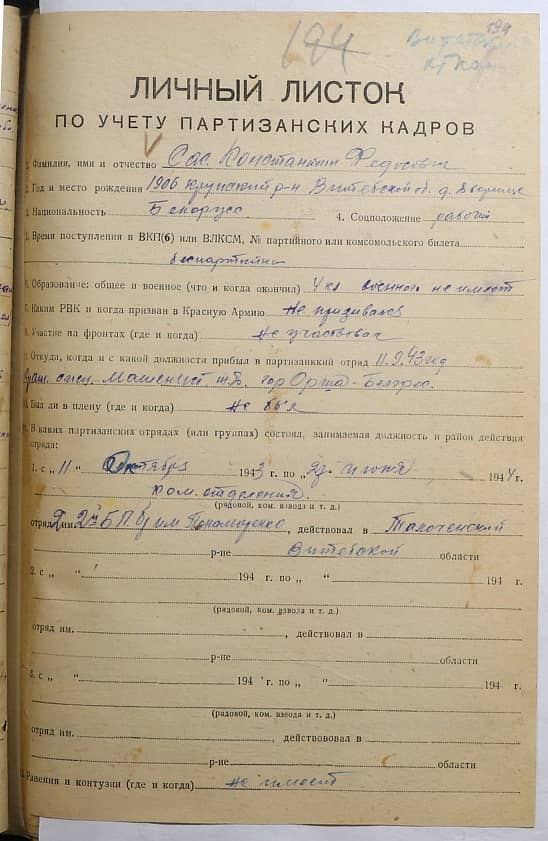 194
194
ЛИЧНЫЙ ЛИСТОК
ПО УЧЕТУ ПАРТИЗАНСКИХ КАДРОВ
1. Фамилия, имя и отчество Сас Константин Федосович
2. Год и место рождения 1906 Крупский р-н Витебской об. д.
3. Национальность Белорус 4. Соцположение рабочий
5. Время поступления в ВКП(б) или ВЛКСМ, № партийного или комсомольского билета
беспартийный
6. Образование: общее и военное (что и когда окончил) 4 кл военного не имеет
7. Каким РВК и когда призван в Красную Армию Не призывался
8. Участие на фронтах (где и когда) Не участвовал
9. Откуда, когда и с какой должности прибыл в партизанский отряд 11.9.43 год
Машинист гор Орша
10. Был ли в плену (где и когда) Не был
11. В каких партизанских отрядах (или группах) состоял, занимаемая должность и район действия
отряда:
1. с „ 11 “ Октября 1943 г. по „ 29 июня 1944 г.
ком. отделения
(рядовой, ком. взвода и т. д.)
отряд им. 2й БПБ им Пономаренко, действовал в Толоченский
р-не Витебской области
2. с „ “ 194 г. по „ “ 194 г.
(рядовой, ком. взвода и т. д.)
отряд им. , действовал в
р-не области
3. с „ “ 194 г. по „ “ 194 г.
(рядовой, ком. взвода и т. д.)
отряд им. , действововал в
р-не области
12. Ранения и контузии (где и когда) не имеет